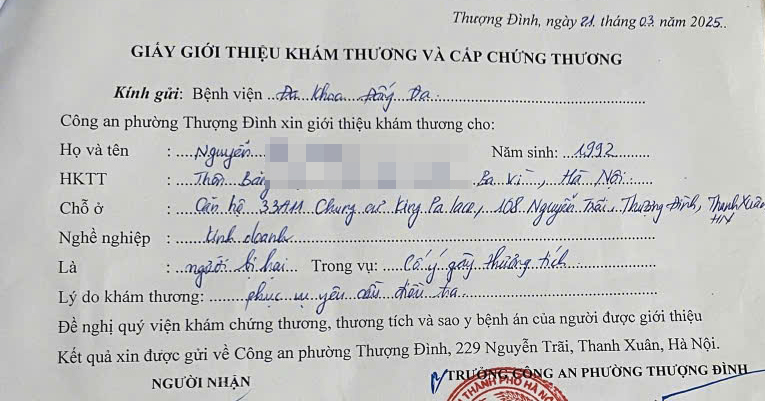 Thượng Đình, ngày 21 tháng 03 năm 2025..
GIẤY GIỚI THIỆU KHÁM THƯƠNG VÀ CẤP CHỨNG THƯƠNG
Kính gửi: Bệnh viện ..Đa khoa Đống Đa..
Công an phường Thượng Đình xin giới thiệu khám thương cho:
Họ và tên : ....Nguyễn Năm sinh: ..1992
HKTT : ....Thôn Ba Vì, Hà Nội
Chỗ ở : ....Căn hộ 33AM Chung cư King Palace, 108 Nguyễn Trãi, Thượng Đình, Thanh Xuân
HN
Nghề nghiệp : ....kinh doanh
Là : ....người bị hại.. Trong vụ: ..Cố ý gây thương tích
Lý do khám thương: ....phục vụ yêu cầu điều tra
Đề nghị quý viện khám chứng thương, thương tích và sao y bệnh án của người được giới thiệu
Kết quả xin được gửi về Công an phường Thượng Đình, 229 Nguyễn Trãi, Thanh Xuân, Hà Nội.
NGƯỜI NHẬN
TRƯỞNG CÔNG AN PHƯỜNG THƯỢNG ĐÌNH
THÀNH PHỐ HÀ